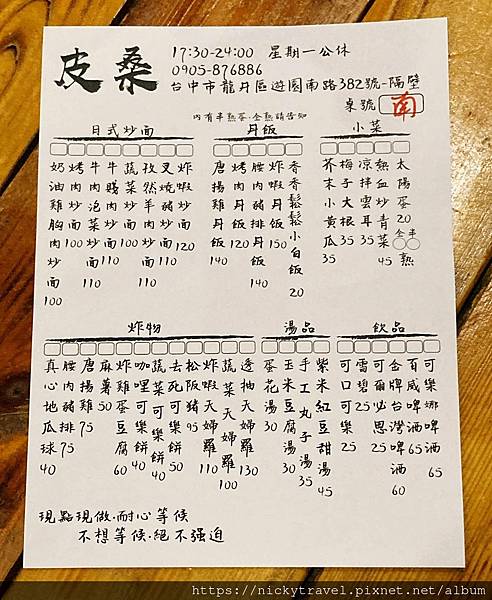 皮桑
17:30-24:00 星期一公休
0905-876886
台中市龍井區遊園南路382號-隔壁
桌號 南
內有半熟蛋.全熟請告知
日式炒面
奶油雞胸肉炒面100
烤肉炒面100
牛肉泡菜炒面110
牛肉炒面110
蔬菜炒面100
孜然羊肉炒面110
叉燒炒面110
炸蝦炒面120
丼飯
唐揚雞丼飯140
烤肉丼飯120
腰內豬排丼飯140
炸蝦丼飯150
香香鬆鬆小白飯20
小菜
芥末小黃瓜35
梅子大根35
涼拌雲耳35
熱血青菜45
太陽蛋20
全半
熟
炸物
真心地瓜球40
腰內豬排75
唐揚雞75
麻薯50
炸雞蛋豆腐60
咖哩可樂餅40
蔬菜可樂餅40
去死可樂餅50
松阪豬95
炸蝦天婦羅110
蔬菜天婦羅100
透抽天婦羅130
湯品
蛋花湯30
玉米豆腐湯30
手工丸子湯35
紫米紅豆甜湯45
飲品
可口可樂25
雪碧25
可爾必思25
金牌台灣啤酒60
百威啤酒65
可樂娜啤酒65
現點現做.耐心等候
不想等候.絕不强迫
https://nickytravel.pixnet.net/album